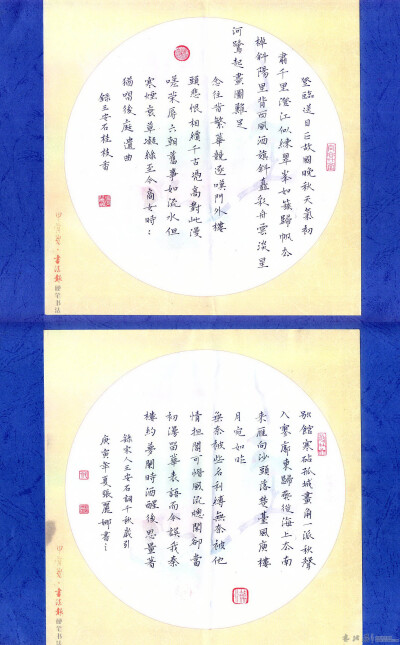 登臨送目正故國晚秋天氣初
肅千里澄江似練翠峯如簇歸帆去
棹斜陽里背西風酒旗斜矗彩舟雲淡星
河鷺起畫圖難足
念往昔繁華競逐嘆門外樓
頭悲恨相續千古憑高對此漫
嗟榮辱六朝舊事如流水但
寒煙衰草凝綠至今商女時：
猶唱後庭遺曲
錄王安石桂枝香
書法報 硬笔书法
別館寒砧孤城畫角一派秋聲
入寥廓東歸燕從海上去南
來雁向沙頭落楚臺風庾樓
月宛如昨
無奈被些名利縛無奈被他
情担閣可惜風流總閑卻當
初漫留華表語而今誤我秦
樓約夢闌時酒醒後思量着
錄宋人王安石詞千秋歲引
庚寅年夏張麗娜書：
書法報 硬笔书法